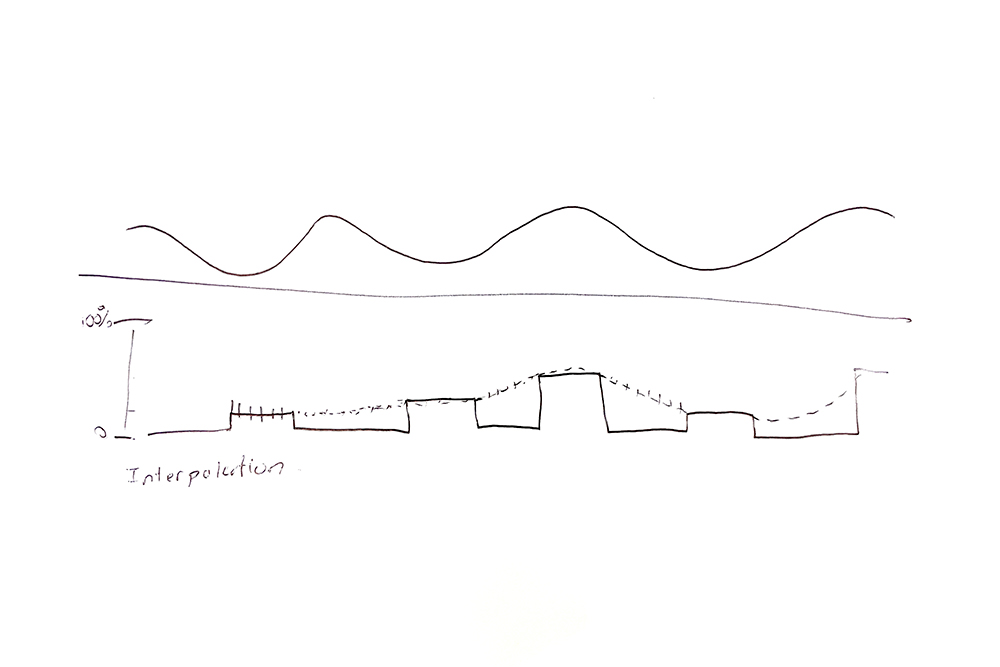 100%
0
Interpolation